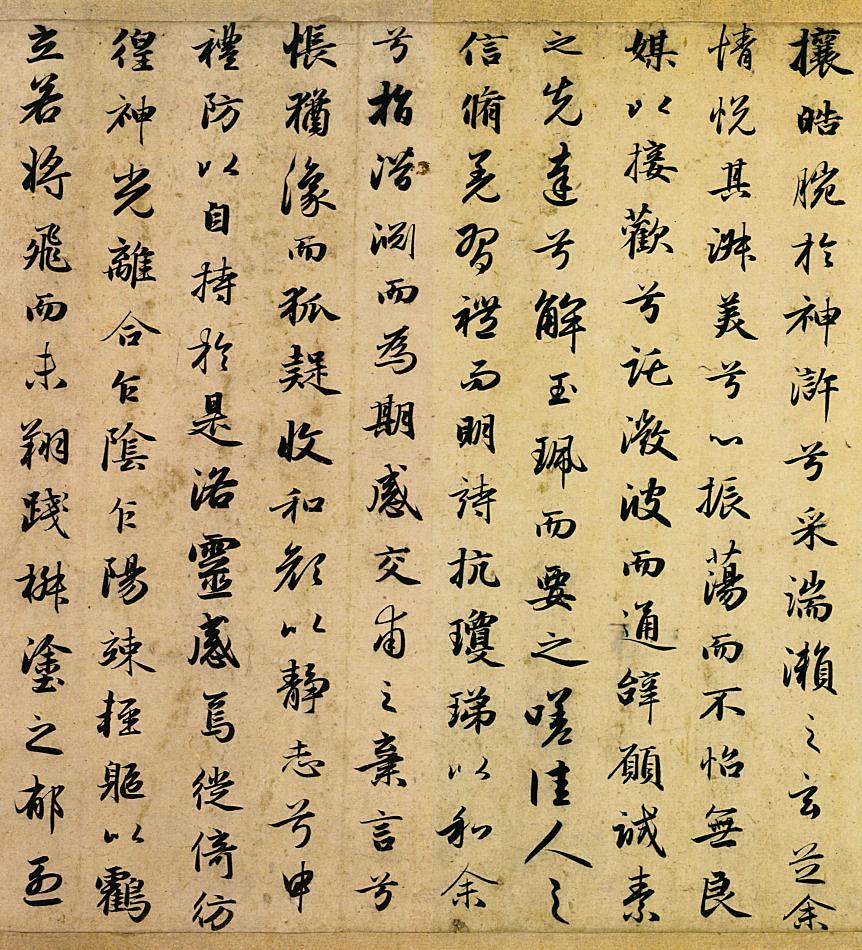 攘皓腕於神滸兮采湍瀨之玄芝余
情悅其淑美兮心振蕩而不怡無良
媒以接歡兮託微波而通辭願誠素
之先達兮解玉珮而要之嗟佳人之
信脩羌習禮而明詩抗瓊珶以和余
兮指潛淵而為期感交甫之棄言兮
悵猶豫而狐疑收和顏以靜志兮申
禮防以自持於是洛靈感焉徙倚彷
徨神光離合乍陰乍陽竦輕軀以鶴
立若將飛而未翔踐椒塗之郁烈